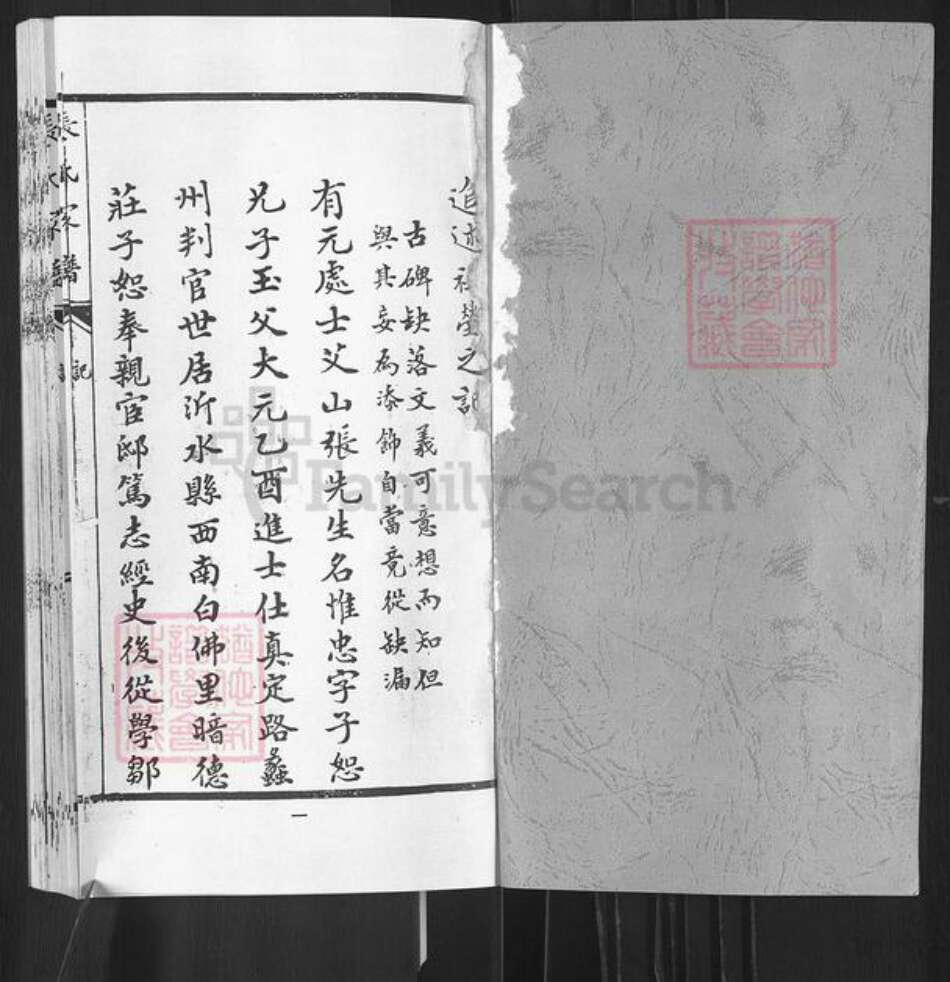 追述祖塋之記
古碑缺落文義可意想而知但
與其妄為添飾自當竟從缺漏
有元處士父山張先生名惟忠字子恕
兄子玉父大元乙酉進士仕真定路蠡
州判官世居沂水縣西南白佛里暗德
莊子恕奉親宦邸篤志經史後從學鄒
張氏家譜
記
一
FamilySearch